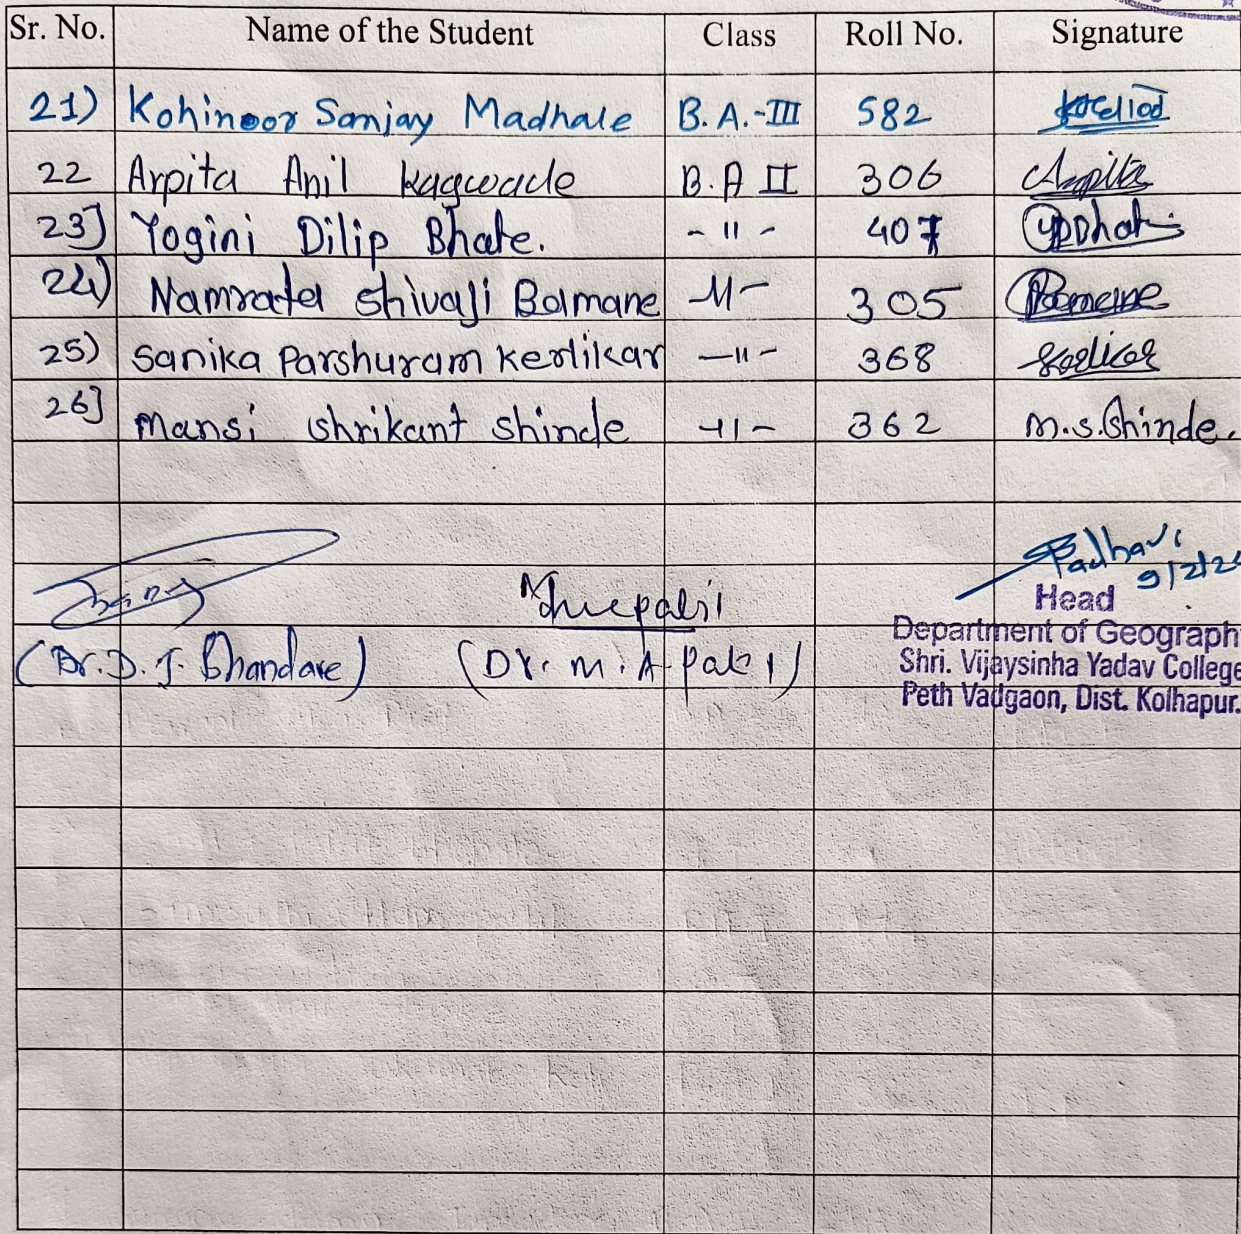 Sr. No. Name of the Student Class Roll No. Signature
21) Kohinoor Sanjay Madhale B.A.-III 582
22 Arpita Anil Kagwade B.A II 306 Arpita
23] Yogini Dilip Bhate. - 11 - 407
24) Namrata Shivaji Bamane -11- 305 Bamane
25) Sanika Parshuram Kerlikar -11- 368
26] Mansi Shrikant Shinde -11- 362 M.S.Shinde.
9/2/24
Head
(Dr. D. J. Bhandare) (Dr. M. A. Patil) Department of Geograph
Shri. Vijaysinha Yadav College
Peth Vadgaon, Dist. Kolhapur.